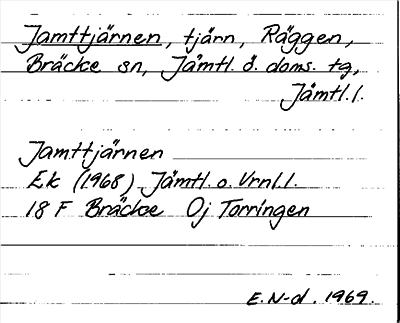 Jamttjärnen, tjärn, Räggen,
Bräcke sn, Jämtl. ö. doms. tg,
Jämtl. l.
Jamttjärnen
Ek (1968) Jämtl. o. Vrnl. l.
18 F Bräcke Oj Torringen
E. N-d. 1969.